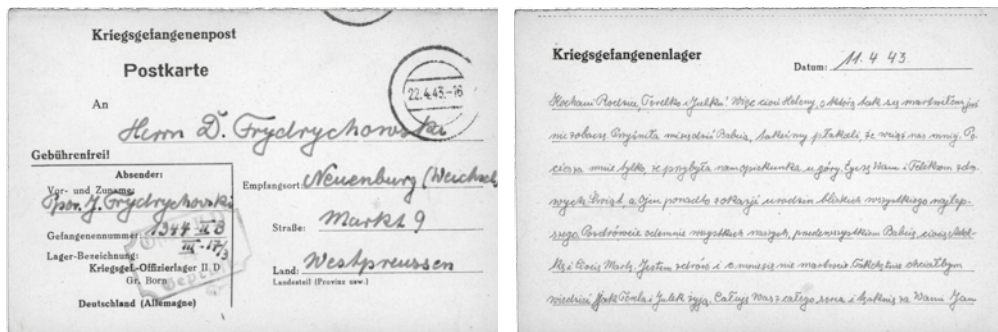 Kriegsgefangenenpost
Postkarte
22.4.43.-16
An
Herrn D. Frydrychowski
Gebührenfrei!
Absender:
Vor- und Zuname:
por. J. Frydrychowski
Gefangenennummer: 1344 II B
III-17/3
Lager-Bezeichnung:
Kriegsgef.-Offizierlager II D
Gr. Born
Deutschland (Allemagne)
Empfangsort: Neuenburg (Weichsel
Straße: Markt 9
Land: Westpreussen
Landesteil (Provinz usw.)
Kriegsgefangenenlager
Datum: 11. 4. 43.
Kochani Rodzice, Terelko i Julku! Więc cioci Heleny, o którą tak się martwiłem już
nie zobaczę. Babcia, płakali, że wciąż nas mniej. Po-
ciesza mnie tylko że przybyła nam opiekunka u góry. Życzę Wam i zdro-
wych Świąt, a Ojcu ponadto z okazji urodzin bliskich wszystkiego najlep-
szego. Pozdrówcie odemnie wszystkich naszych, przedewszystkiem Babcię, ciocię
i ciocię Martę. Jestem zdrów i o mnie się nie martwcie. chciałbym
wiedzieć jak i Julek żyją. Całuję Was z całego serca i tęsknię za Wami Jan